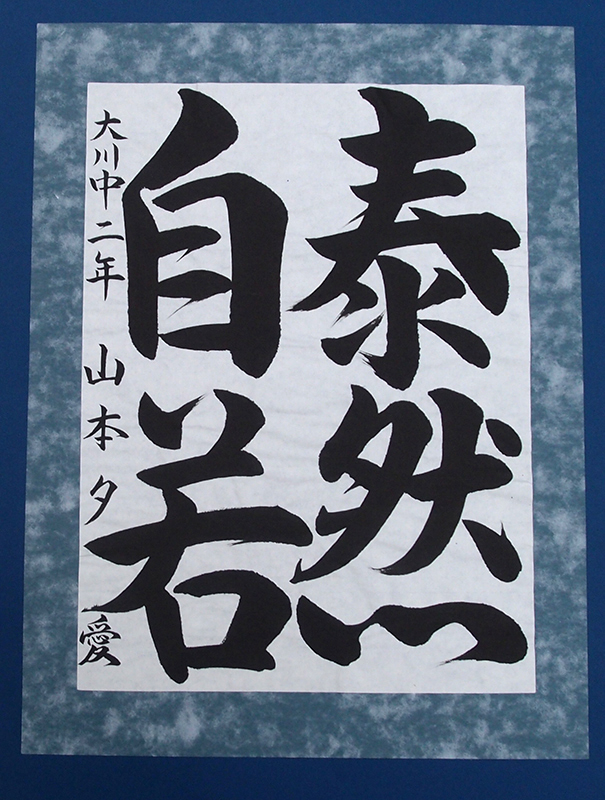 泰然
自若
大川中二年 山本夕愛